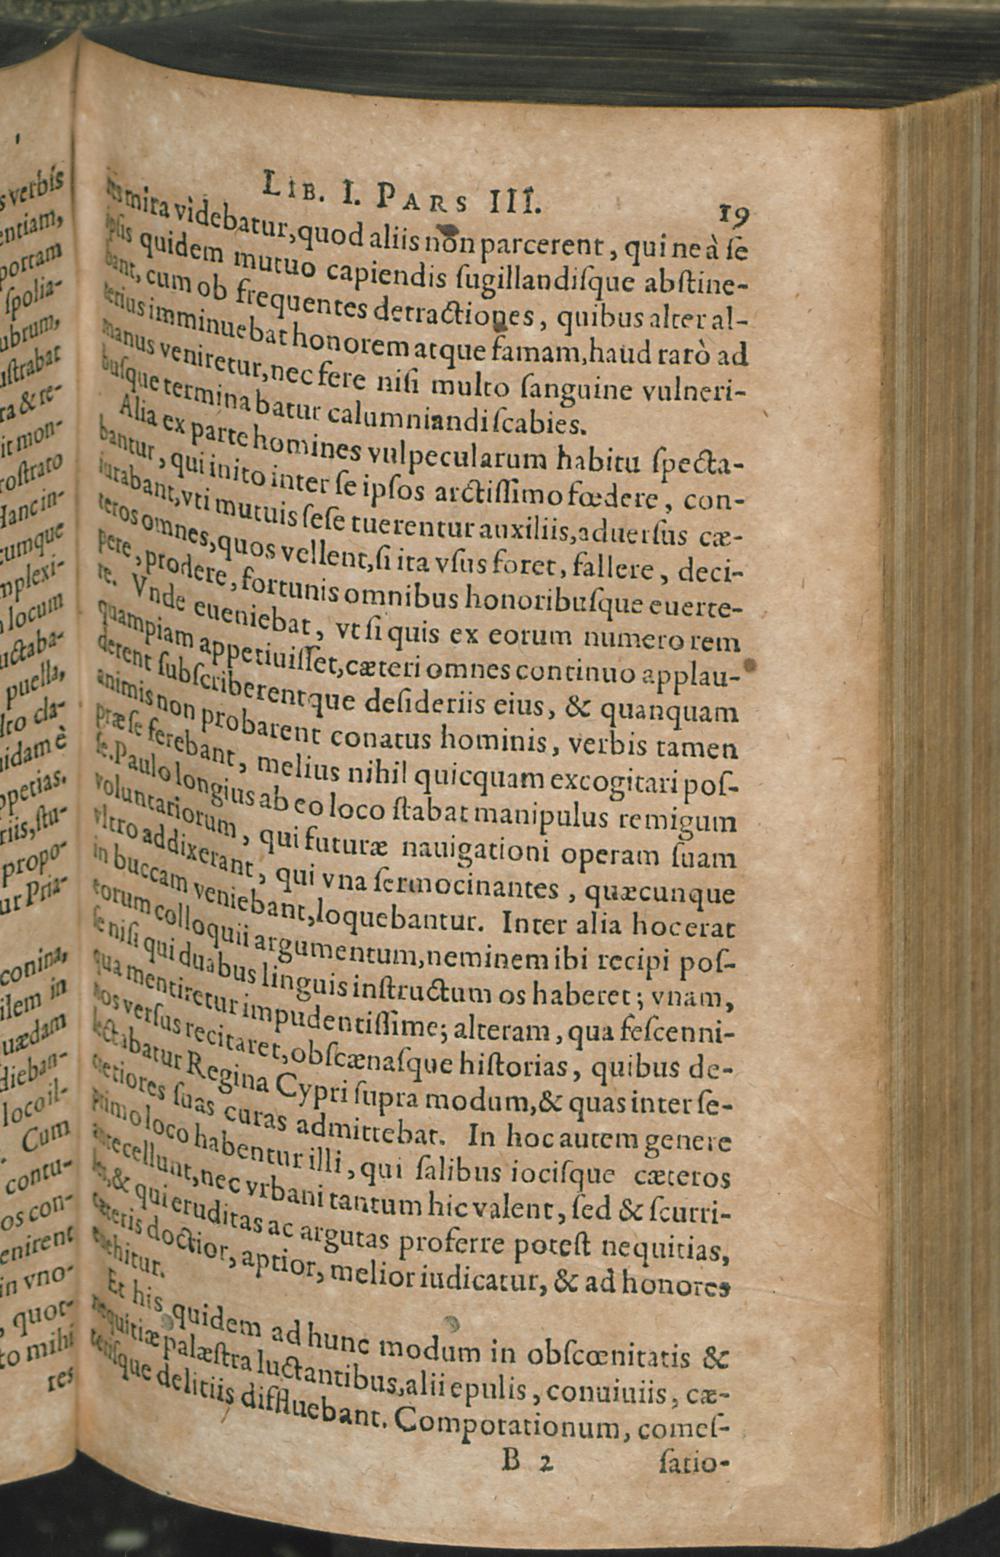 s verbis
entiam,
portam
ſpolia-
ubrum,
uſtrabat
ra & re-
it mon-
roſtrato
Hanc in-
cumque
mplexi-
locum
uctaba-
puella,
lto cla-
uidam è
ppetias.
riis, ſtu-
propo-
ur Pria-
conina,
ilem in
uædam
dieban-
loco il-
. Cum
contu-
os con-
enirent
in vno-
, quot-
to mihi
res
LIB. I. PARS III. 19
res mira videbatur, quod aliis non parcerent, qui ne à ſe
ipſis quidem mutuo capiendis ſugillandiſque abſtine-
bant, cum ob frequentes detractiones, quibus alter al-
terius imminuebat honorem atque famam, haud rarò ad
manus veniretur, nec fere niſi multo ſanguine vulneri-
buſque terminabatur calumniandi ſcabies.
Alia ex parte homines vulpecularum habitu ſpecta-
bantur, qui inito inter ſe ipſos arctiſſimo fœdere, con-
iurabant, vti mutuis ſeſe tuerentur auxiliis, aduerſus cæ-
teros omnes, quos vellent, ſi ita vſus foret, fallere, deci-
pere, prodere, fortunis omnibus honoribuſque euerte-
re. Vnde eueniebat, vt ſi quis ex eorum numero rem
quampiam appetiuiſſet, cæteri omnes continuo applau-
derent ſubſcriberentque deſideriis eius, & quanquam
animis non probarent conatus hominis, verbis tamen
præ ſe ferebant, melius nihil quicquam excogitari poſ-
ſe. Paulo longius ab eo loco ſtabat manipulus remigum
voluntariorum, qui futuræ nauigationi operam ſuam
vltro addixerant, qui vna ſermocinantes, quæcunque
in buccam veniebant, loquebantur. Inter alia hoc erat
eorum colloquii argumentum, neminem ibi recipi poſ-
ſe niſi qui duabus linguis inſtructum os haberet; vnam,
qua mentiretur impudentiſſime; alteram, qua feſcenni-
nos verſus recitaret, obſcænaſque hiſtorias, quibus de-
lectabatur Regina Cypri ſupra modum, & quas inter ſe-
cretiores ſuas curas admittebat. In hoc autem genere
primo loco habentur illi, qui ſalibus iociſque cæteros
antecellunt, nec vrbani tantum hic valent, ſed & ſcurri-
les, & qui eruditas ac argutas proferre poteſt nequitias,
cæteris doctior, aptior, melior iudicatur, & ad honores
euehitur.
Et his quidem ad hunc modum in obſcœnitatis &
nequitiæ palæſtra luctantibus, alii epulis, conuiuiis, cæ-
teriſque delitiis diffluebant. Compotationum, comeſ-
B 2 ſatio-